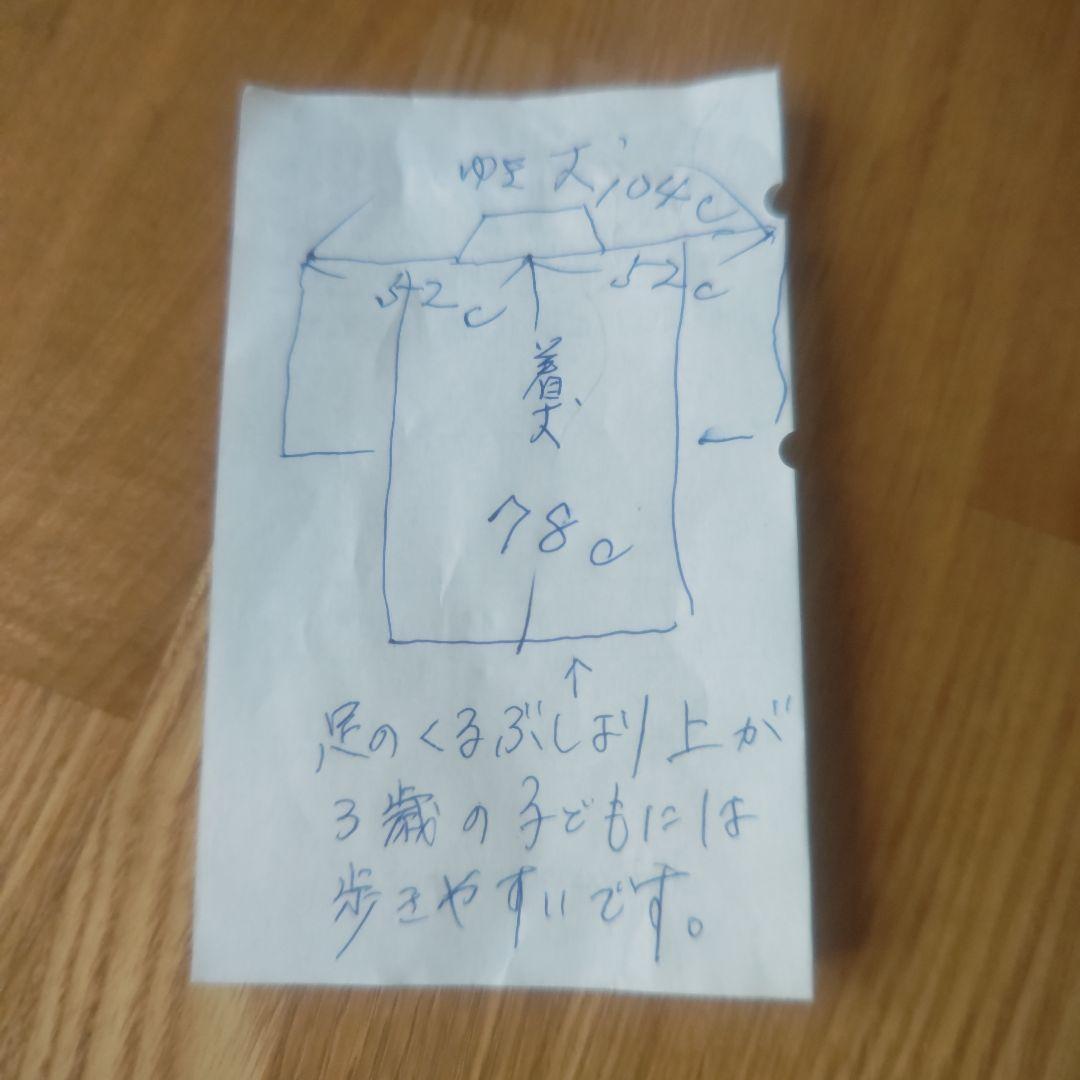 ゆき丈104c
52c 52c
着丈
78c
↑
足のくるぶしより上が
3歳の子どもには
歩きやすいです。